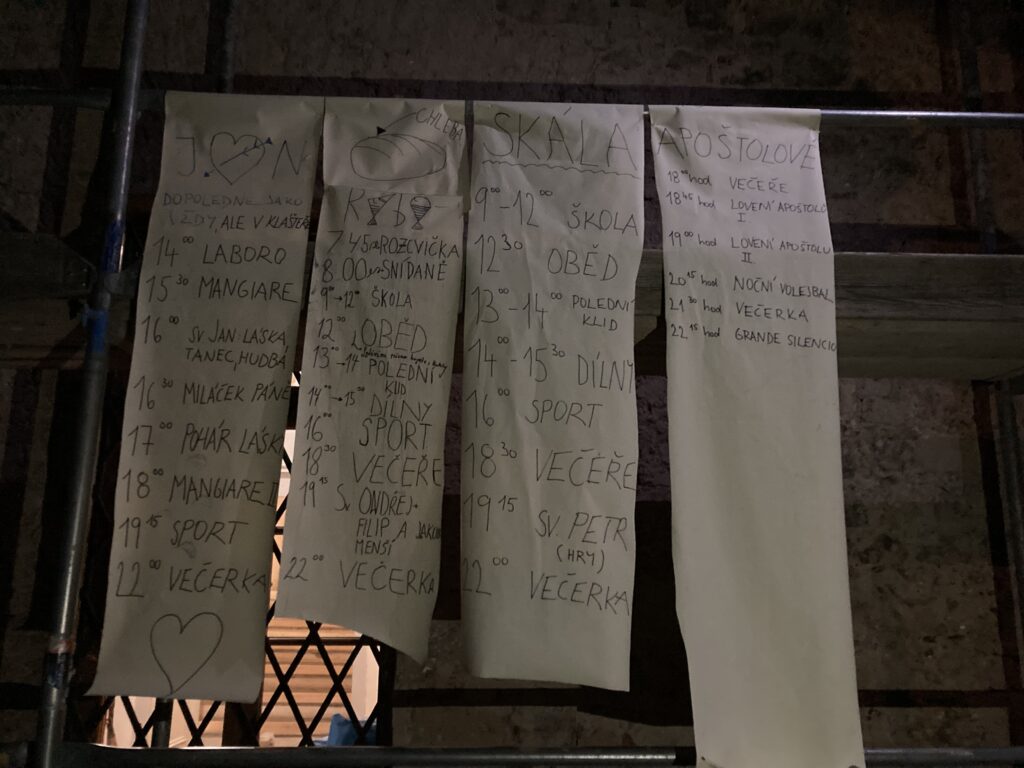 J N
DOPOLEDNE JAKO
VŽDY, ALE V KLÁŠTEŘE
14⁰⁰ LABORO
15³⁰ MANGIARE
16⁰⁰ SV. JAN LÁSKA,
TANEC, HUDBA
16³⁰ MILÁČEK PÁNĚ
17⁰⁰ POHÁR LÁSKY
18⁰⁰ MANGIARE II
19¹⁵ SPORT
22⁰⁰ VEČERKA
CHLEBA
RYBY
7.45 ROZCVIČKA
8.00 SNÍDANĚ
9⁰⁰→12⁰⁰ ŠKOLA
12⁰⁰ OBĚD
13⁰⁰→14⁰⁰ POLEDNÍ
KLID
14⁰⁰→15³⁰ DÍLNY
16⁰⁰ SPORT
18³⁰ VEČEŘE
19¹⁵ SV. ONDŘEJ +
FILIP A JAKUB
MENŠÍ
22⁰⁰ VEČERKA
SKÁLA
9⁰⁰-12⁰⁰ ŠKOLA
12³⁰ OBĚD
13⁰⁰-14⁰⁰ POLEDNÍ
KLID
14⁰⁰-15³⁰ DÍLNY
16⁰⁰ SPORT
18³⁰ VEČEŘE
19¹⁵ SV. PETR
(HRY)
22⁰⁰ VEČERKA
APOŠTOLOVÉ
18⁰⁰ hod VEČEŘE
18⁴⁵ hod LOVENÍ APOŠTOLŮ
I.
19⁰⁰ hod LOVENÍ APOŠTOLŮ
II.
20¹⁵ hod NOČNÍ VOLEJBAL
21³⁰ hod VEČERKA
22¹⁵ hod GRANDE SILENCIO